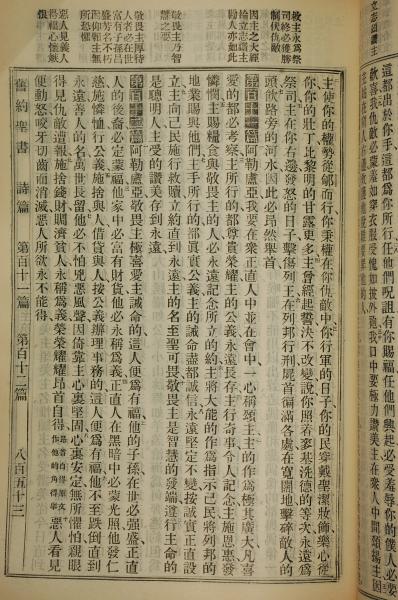 立志頌讚主
這都出於你手這都為你所行任他們咒詛有你賜福任他們興起必受羞辱你的僕人必要
歡喜我仇敵必蒙羞如穿衣服受愧如披外袍我口中要極力讚美主在眾人中間頌揚主因
教主永為祭
司終必獲勝
制伏仇敵
因主之大經
綸立志讚主
勸人亦如此
敬畏主乃智
慧之要
敬畏主厚待
人者必在世
有福子孫昌
盛芳名不朽
因仰賴主無
所恐懼
惡人見義人
得福心懷嫉
恨
主使你的權勢從郇而行你秉權在你仇敵中你行軍的日子你的民穿戴聖潔妝飾樂心從
你你的壯丁比黎明的甘露更多主曾經起誓決不改變說你照着麥基洗德的等次永遠為
祭司主在你右邊發怒的日子擊傷列王在列邦行刑屍首徧滿各處在寬闊地擊碎敵人的
頭飲路旁的河水因此必昂然舉首
第百十一篇阿勒盧亞我要在眾正直人中並在會中一心稱頌主主的作為極其廣大凡喜
愛的都必考察主所行的都尊貴榮耀主的公義永遠長存主行奇事令人記念主施恩惠發
憐憫主賜糧食與敬畏主的人必永遠記念所立的約主將大能的作為指示己民將列邦的
地業賜與他們主手所行的都誠實公義主的誡命盡都誠信永遠堅定不變按誠實正直設
立主向己民施行救贖立約直到永遠主的名至聖可畏敬畏主是智慧的發端遵行主命的
是聰明人主受的讚美存到永遠
第百十二篇阿勒盧亞敬畏主極喜愛主誡命的這人便為有福他的子孫在世必强盛正直
人的後裔必定蒙福他家中必富有財貨他必永稱為義正直人在黑暗中必蒙光照他發仁
慈施憐恤行公義施捨與人借貸與人按公義辦理事務的這人便為有福他不至跌倒直到
永遠善人的名在世長留他必不怕兇惡風聲因倚靠主心裏堅固心裏安定無所懼怕親眼
得見仇敵遭報施捨錢財賙濟貧人永稱為義榮榮耀耀昂首自得昂首自得原文作他的角得舉惡人看見
便動怒咬牙切齒而消滅惡人所欲永不能得
舊約聖書 詩篇 第百十一篇 第百十二篇 八百五十三